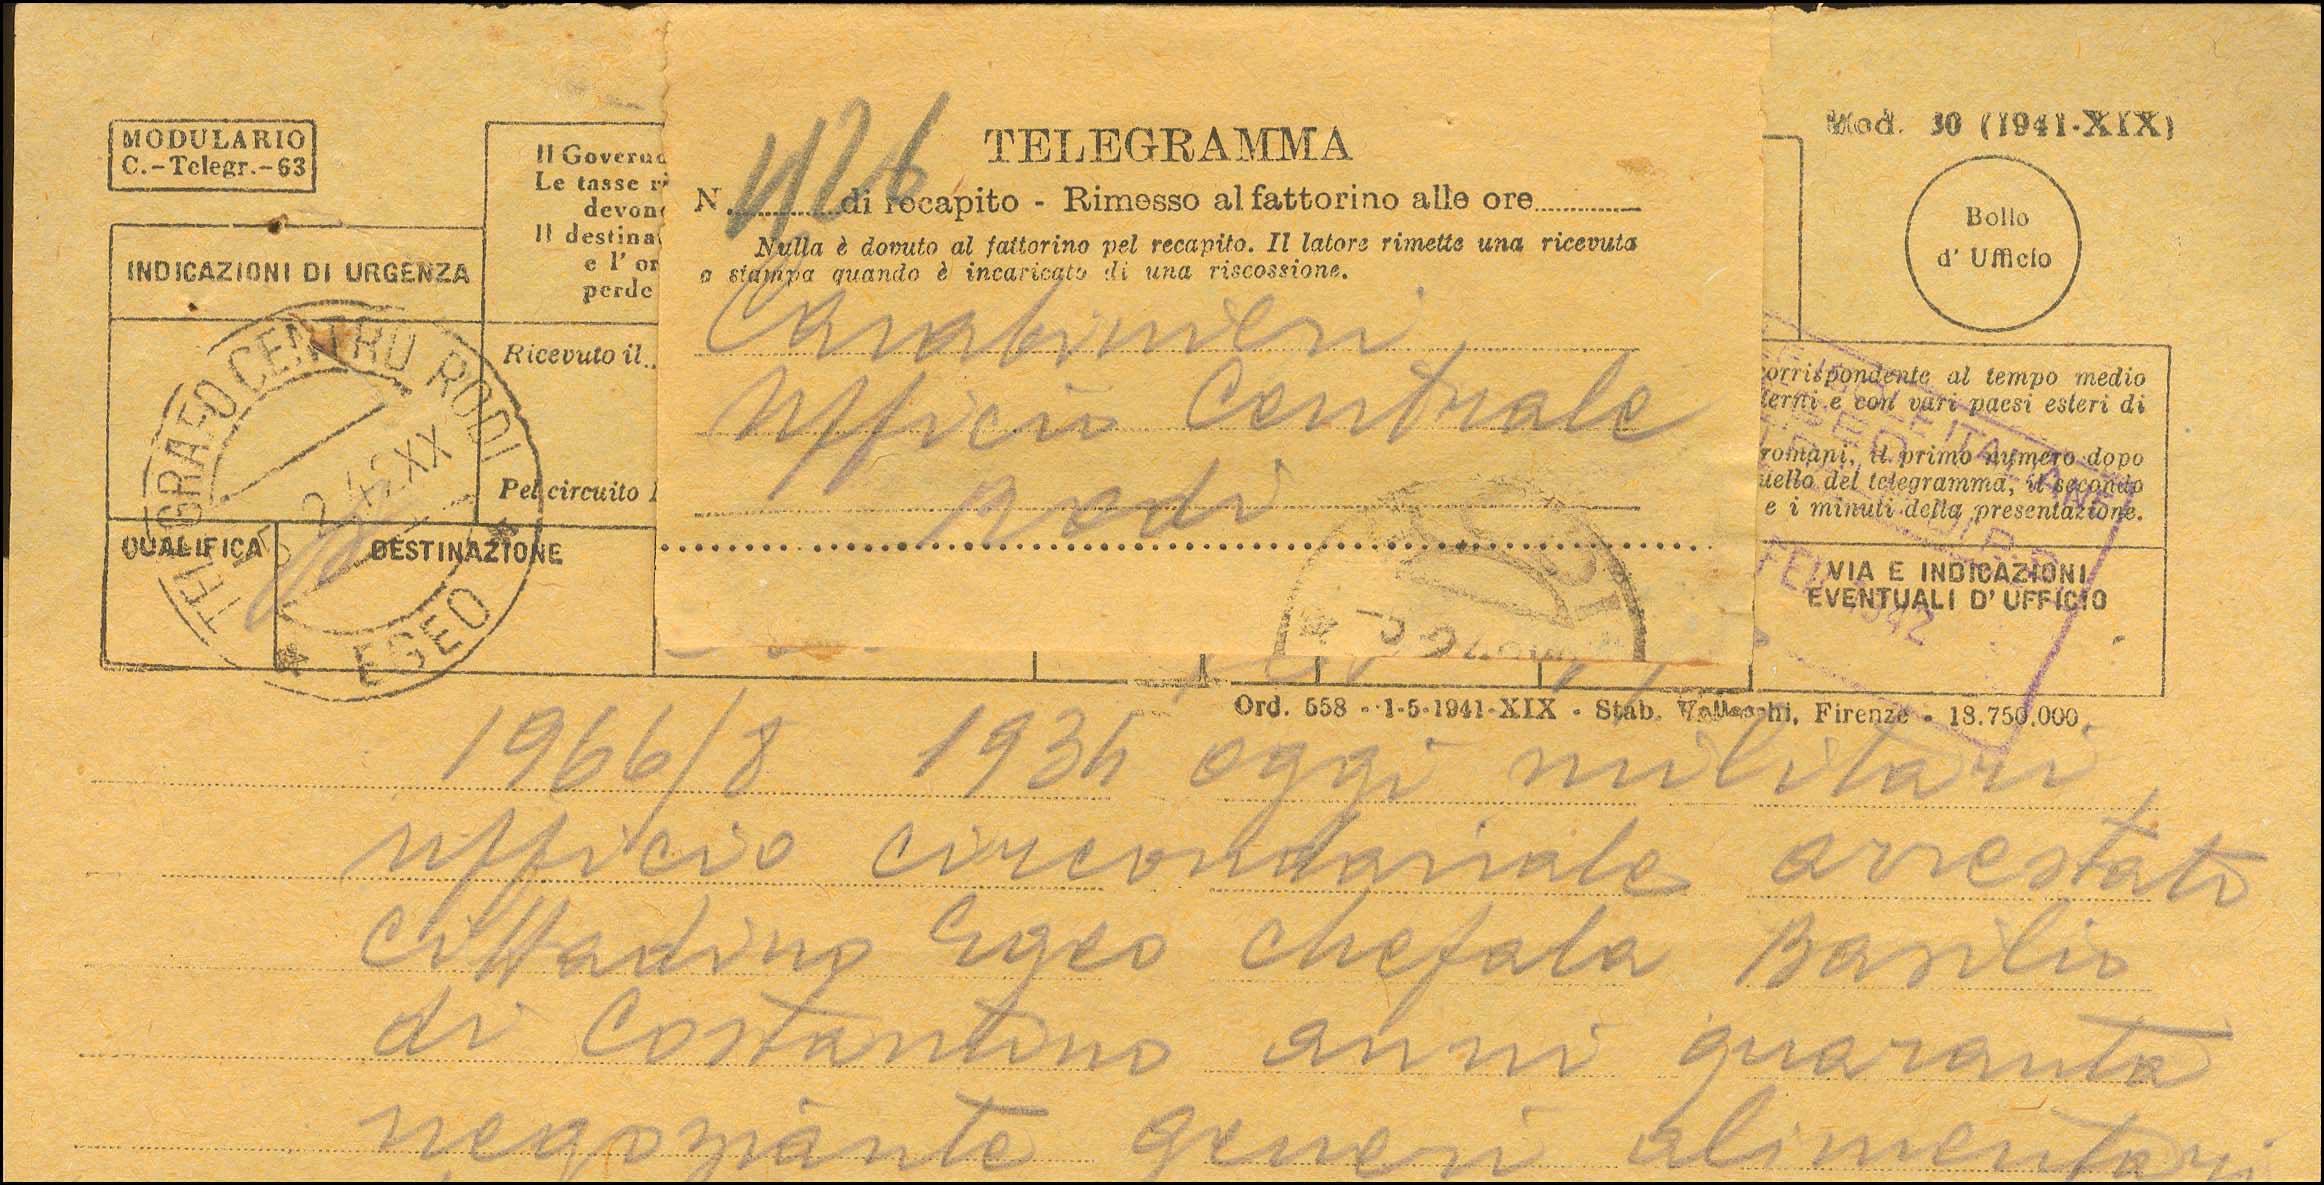 MODULARIO
C.-Telegr.-63
INDICAZIONI DI URGENZA
Il Govern
Le tasse ri
devon
Il destina
e l' or
perde
Ricevuto il
Pel circuito
QUALIFICA
DESTINAZIONE
TELEGRAFO CENTRO RODI
2.42XX
EGEO
1126
TELEGRAMMA
N. di recapito - Rimesso al fattorino alle ore
Nulla è dovuto al fattorino pel recapito. Il latore rimette una ricevuta
a stampa quando è incaricato di una riscossione.
Carabinieri
Ufficio Centrale
Rodi
Mod. 30 (1941-XIX)
Bollo
d' Ufficio
orrispondente al tempo medio
terni e con vari paesi esteri di
romani, il primo numero dopo
uello del telegramma, il secondo
e i minuti della presentazione.
VIA E INDICAZIONI
EVENTUALI D' UFFICIO
Ord. 558 - 1-5-1941-XIX - Stab. Vallecchi, Firenze - 18.750.000
1966/8 193h oggi militari
ufficio circondariale arrestato
cittadino Egeo Chefala Basilio
di Costantino anni quaranta
negoziante generi alimentari